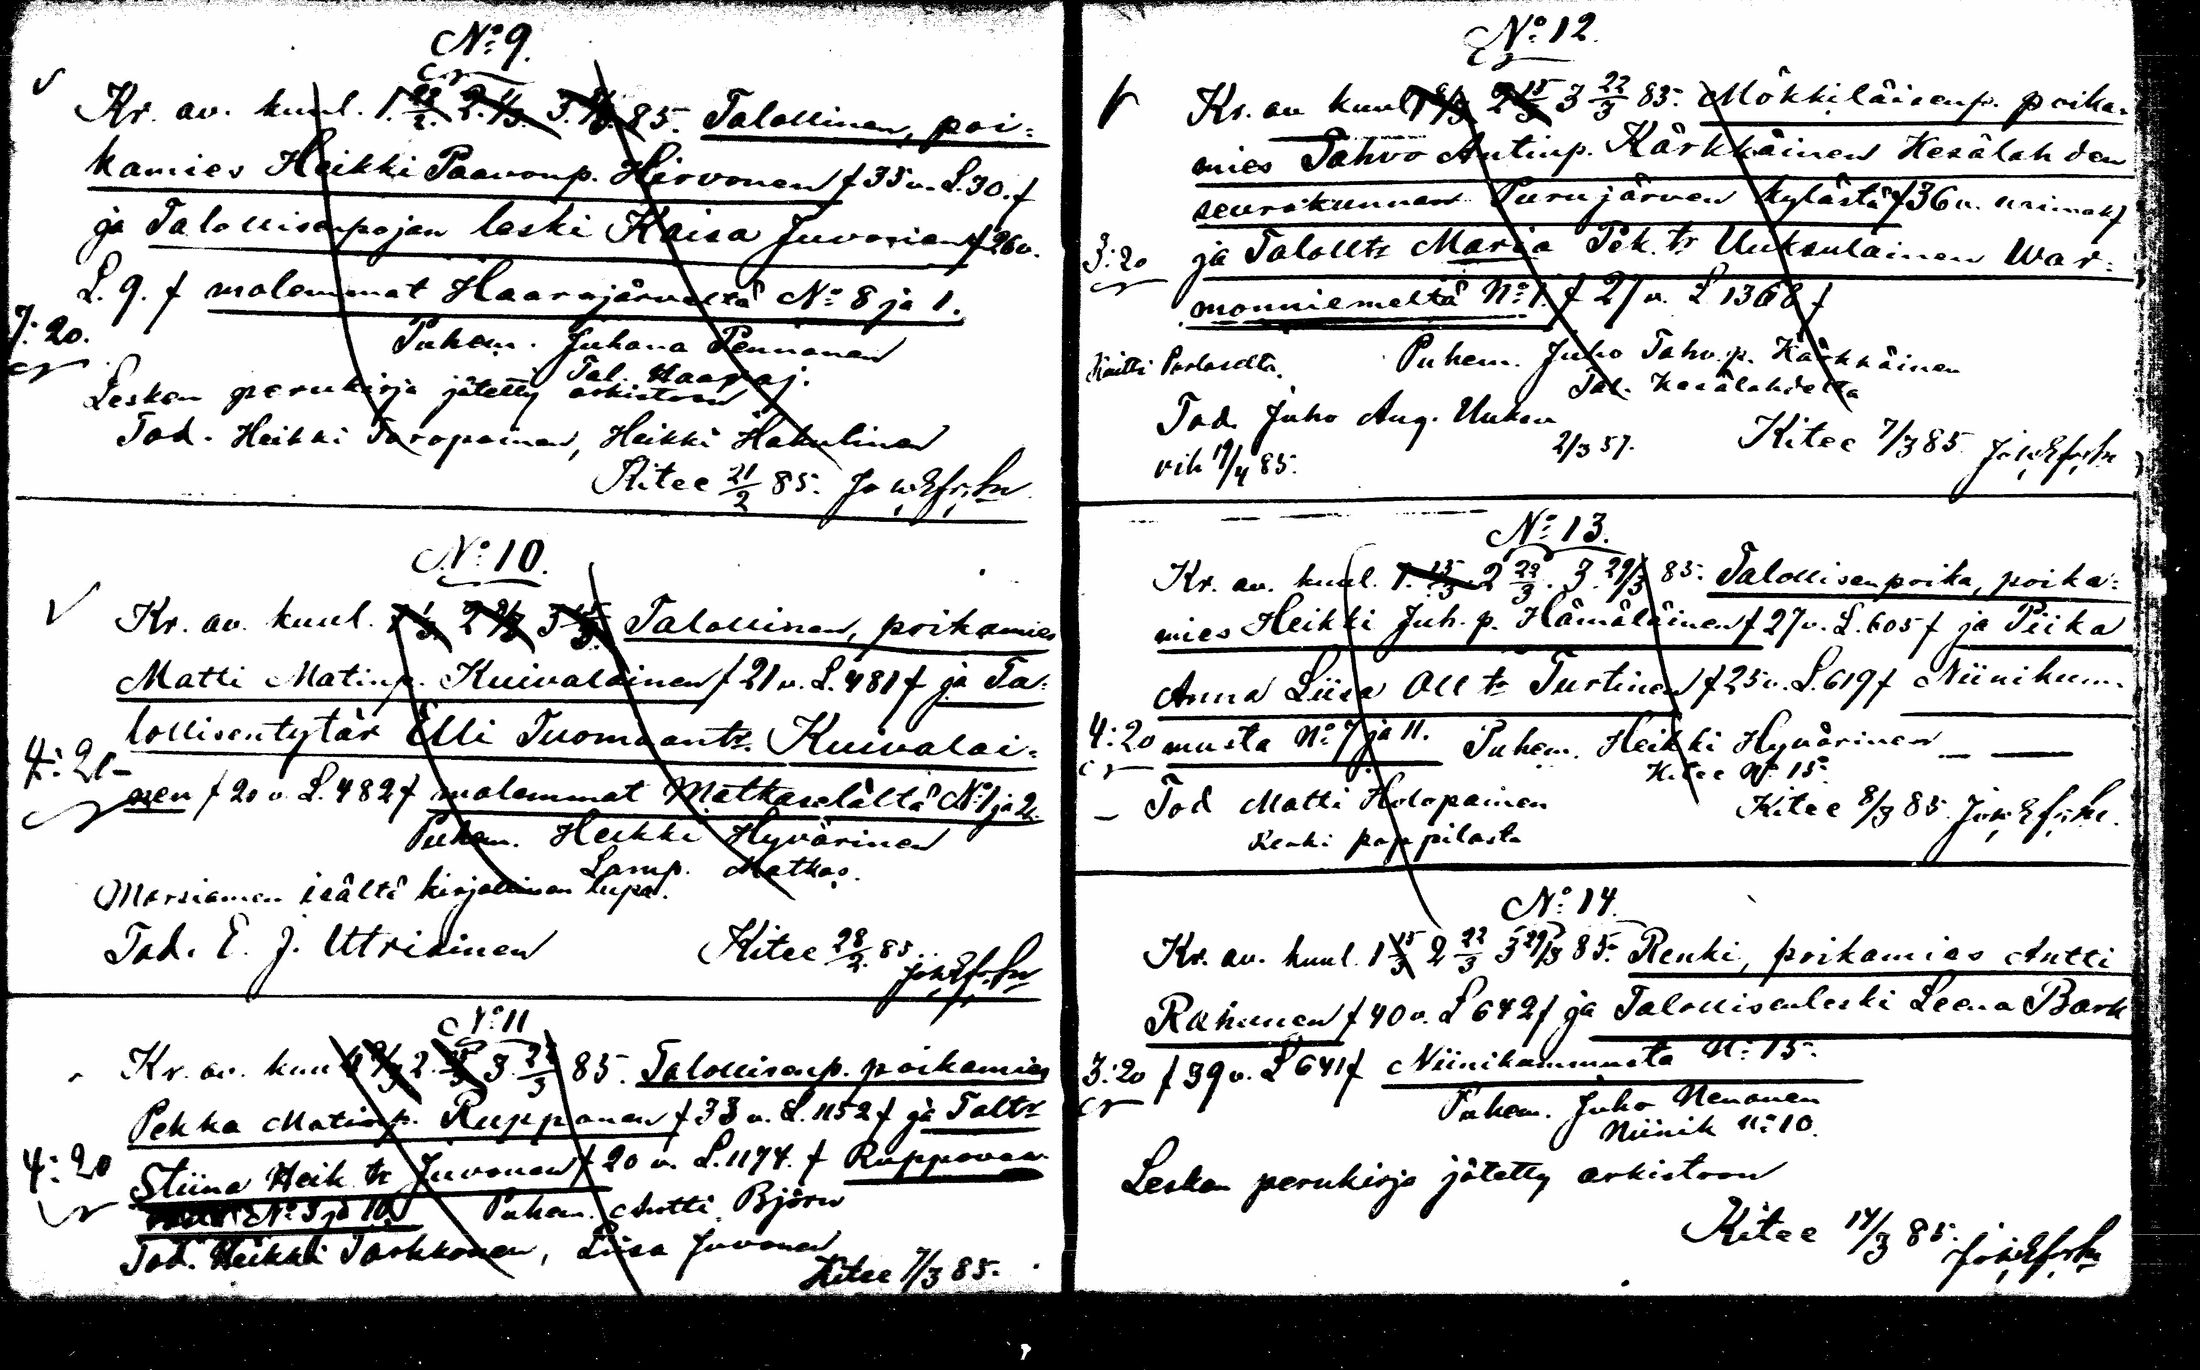 No 9.
Kr. av. kuul. 1. 22/2. 2. 1/3. 3. 85. Talollinen, poi-
kamies Heikki Paavonp. Hirvonen f 35 v. L. 30. f
ja Talollisenpojan leski Kaisa Juvonen f 26 v.
L. 9. f molemmat Haarajärveltä No 8 ja 1.
7:20.
Puhem. Juhana Pennanen
Tal. Haaraj.
Lesken perukirja jätetty arkistoon
Tod. Heikki Toropainen, Heikki Hakulinen
Kitee 21/2 85.
No 10.
Kr. av. kuul. 1 1/3 2 3 85 Talollinen, poikamies
Matti Matinp. Kuivalainen f 21 v. L. 481 f ja Ta-
lollisentytär Elli Tuomaantr. Kuivalai-
4:21-
nen f 20 v. L. 482 f molemmat Matkaselältä No 1 ja 2.
Puhem. Heikki Hyvärinen
Lamp. Matkas.
Morsiamen isältä kirjallinen lupa.
Tod. E. J. Utriainen
Kitee 28/2 85.
No 11
Kr. av. kuul 2. 15/3 3. 22/3 85. Talollisenp. poikamies
Pekka Matinp. Ruppanen f 33 v. L. 1152 f ja Taltr
4:20
Stiina Heik. tr Juvonen f 20 v. L. 1174. f Ruppovaa-
No 3 ja 10. Puhem. Antti Björn
Tod. Heikki Tarkkonen, Liisa Juvonen
Kitee 7/3 85.
No 12.
Kr. av kuul 1 8/3 2 15/3 3 22/3 85. Mökkiläisenp. poika-
mies Pahvo Antinp. Kärkkäinen Kesälahden
seurakunnan Purujärven kylästä f 36 v.
3:20
ja Talolltr Maria Pek. tr Uuksulainen War-
monniemeltä No 1. f 27 v. L 1368 f
Puhem. Juho Tahv. p. Kärkkäinen
Tal. Kesälahdelta
Tod. Juho Aug. Uuksu
2/3 57.
vih 19/4 85.
Kitee 7/3 85.
No 13.
Kr. av. kuul. 1. 15/3 2 22/3. 3. 29/3 85. Talollisenpoika, poika-
mies Heikki Juh. p. Hämäläinen f 27 v. L. 605 f ja Piika
Anna Liisa Oll tr Turtinen f 25 v. L. 619 f Niinikum-
4:20
musta No 7 ja 11. Puhem. Heikki Hyvärinen
Kitee No 15.
Tod Matti Holopainen
Renki pappilasta
Kitee 8/3 85.
No 14.
Kr. av. kuul. 1 15/3 2 22/3 3 29/3 85. Renki, poikamies Antti
Rahunen f 40 v. L 642 f ja Talollisenleski Leena Bark
3:20
f 39 v. L 641 f Niinikummusta No 15.
Puhem. Juho Nenonen
Niinik No 10.
Lesken perukirja jätetty arkistoon
Kitee 14/3 85.